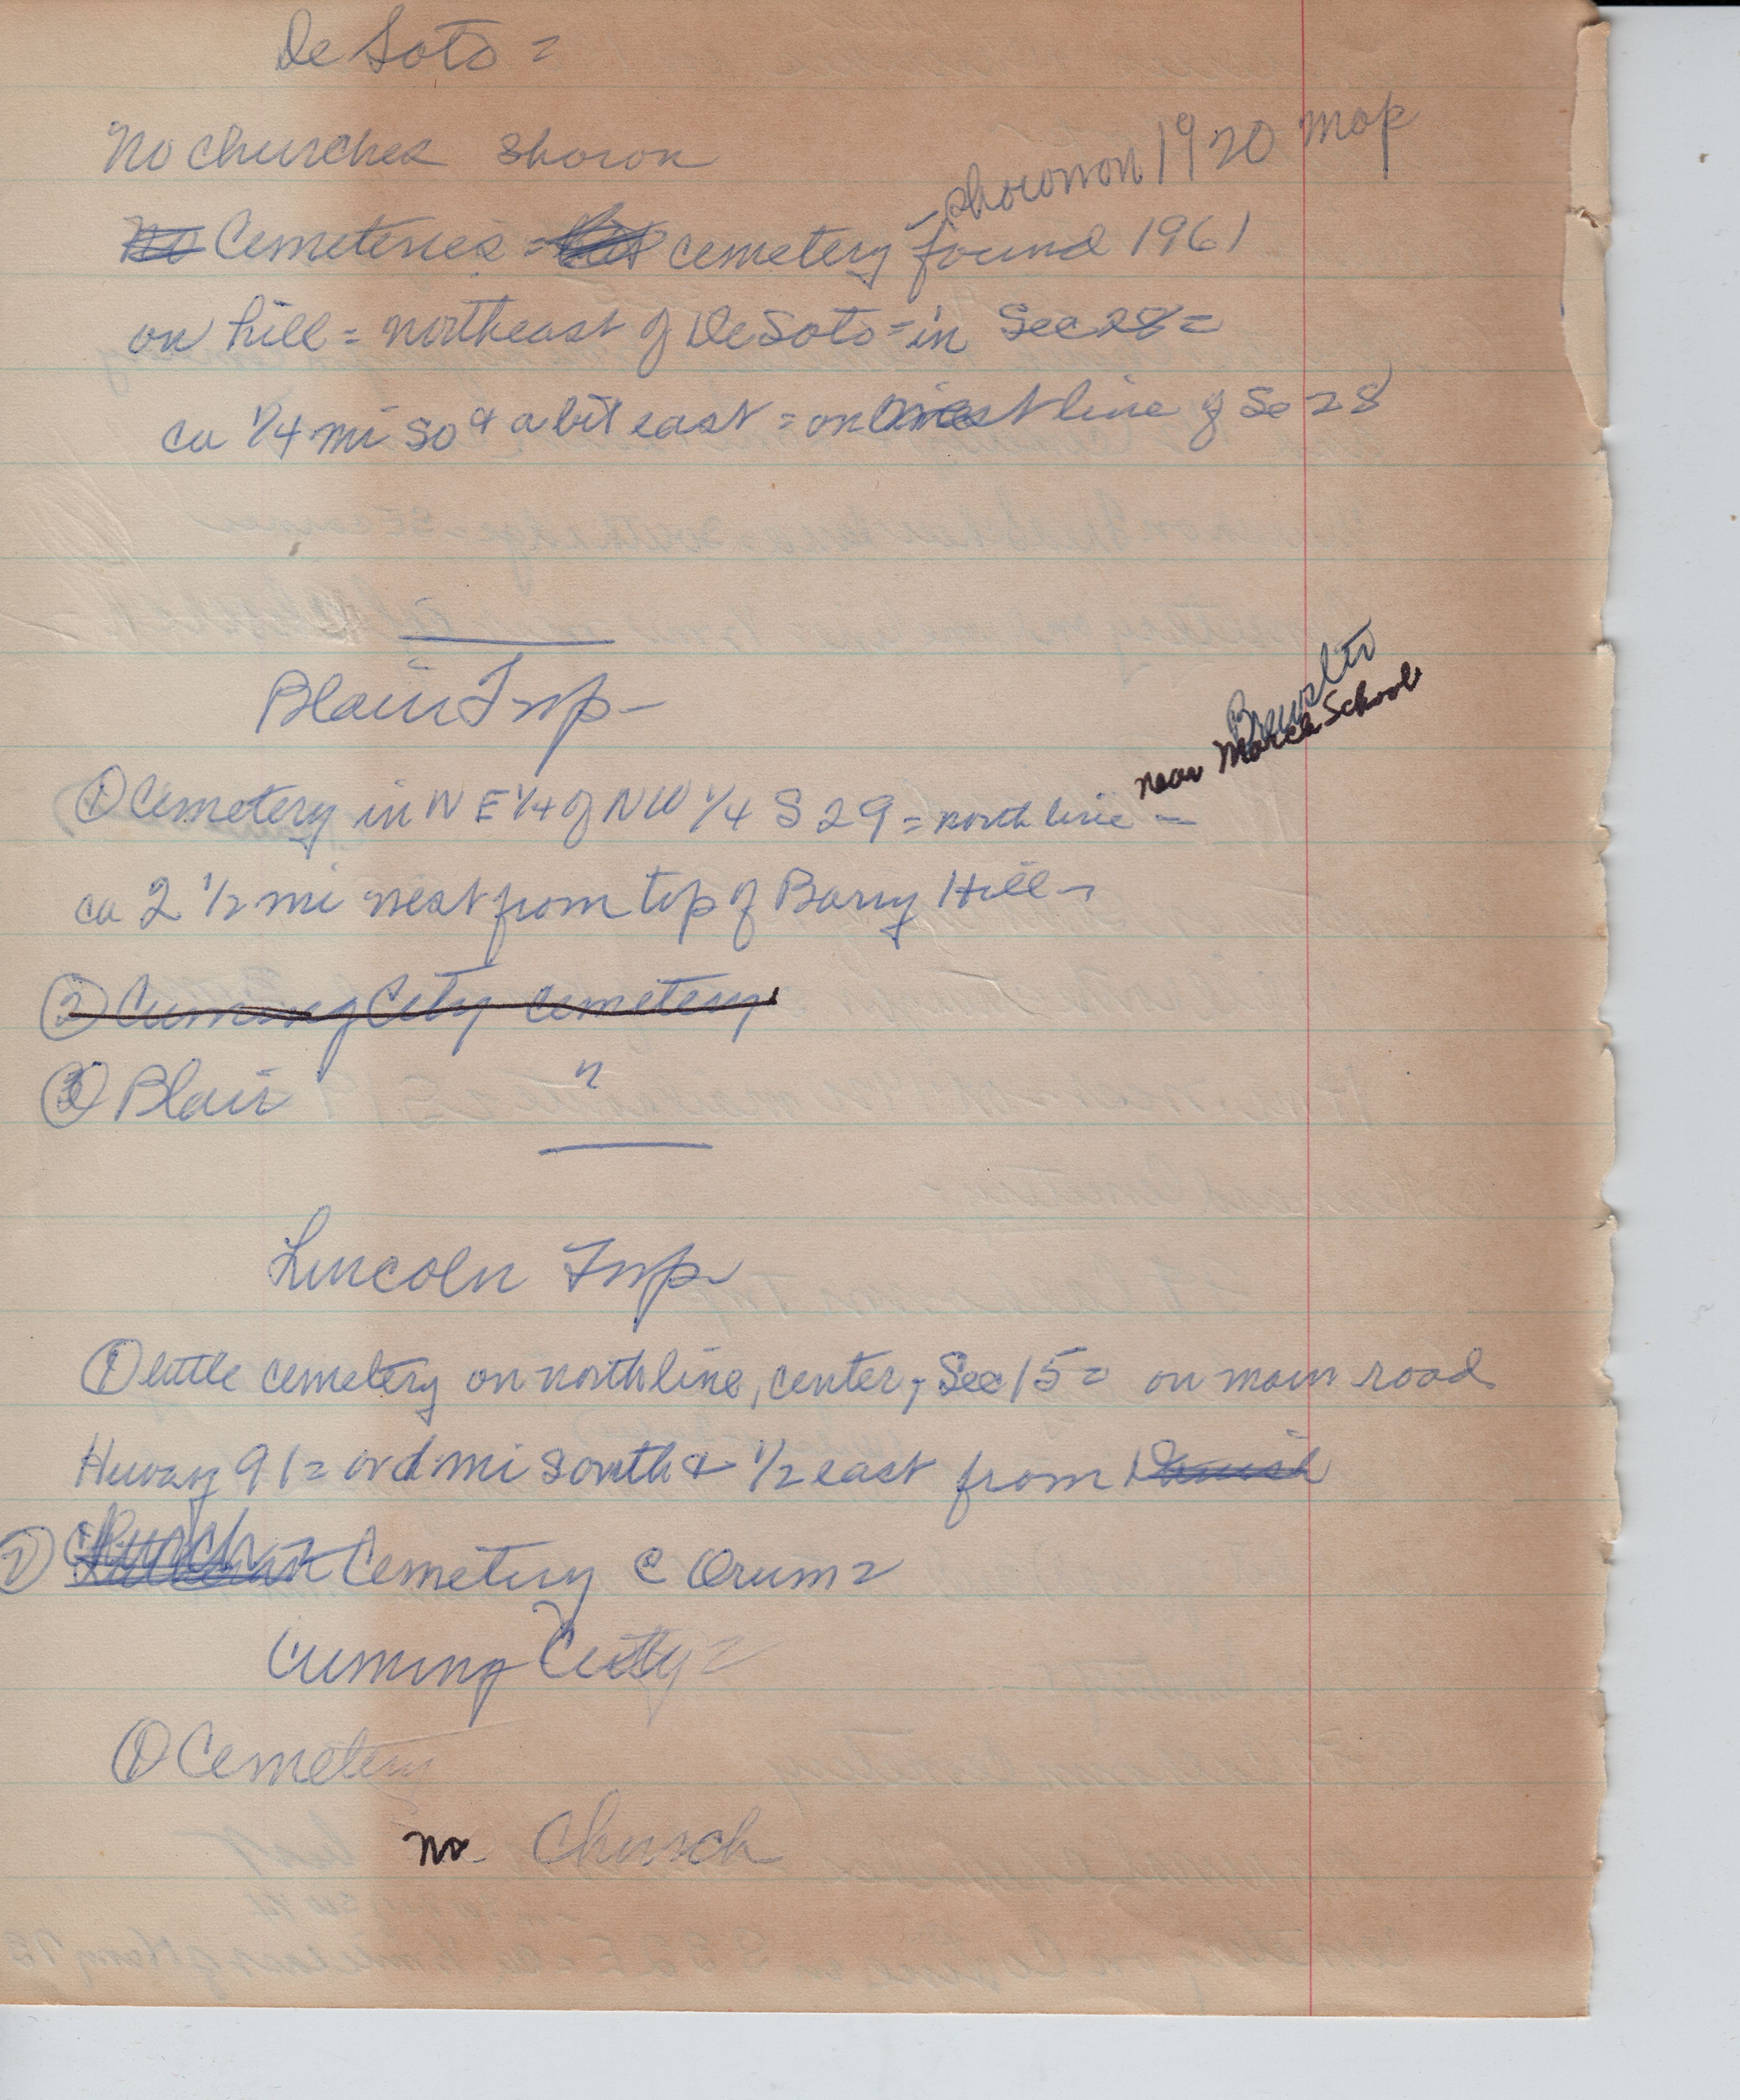 De Soto =
No churches shown
- shown on 1920 map
No Cemeteries = but cemetery found 1961
on hill = northeast of De Soto = in Sec 28 =
ca 1/4 mi so & a bit east = on west line of Se 28
Blair Twp -
Brewster
near March School
① Cemetery in N E 1/4 of NW 1/4 S 29 = north line -
ca 2 1/2 mi west from top of Barry Hill -
② Cuming City Cemetery
③ Blair "
Lincoln Twp
① little cemetery on north line, center, Sec 15 = on main road
Huway 91 = and mi south & 1/2 east from Danish
② Church Cemetery @ Orum =
Cuming City =
① Cemetery
no Church